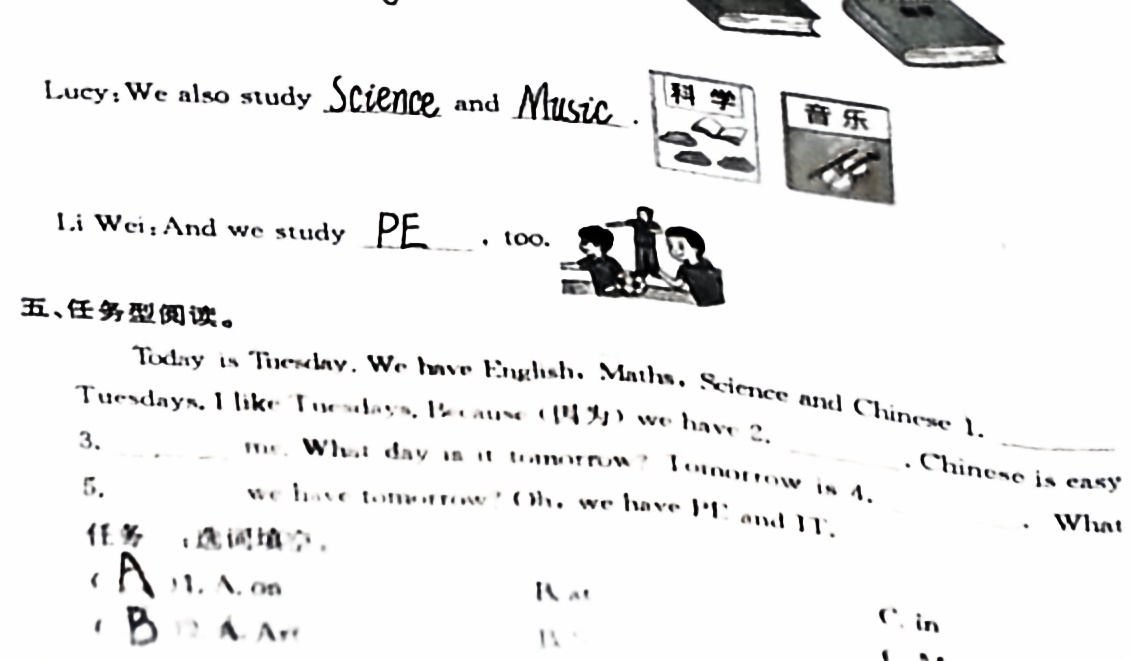 Lucy: We also study Science and Music.
科学
音乐
Li Wei: And we study PE, too.
五、任务型阅读。
Today is Tuesday. We have English, Maths, Science and Chinese 1. ______
Tuesdays. I like Tuesdays. Because (因为) we have 2. ______. Chinese is easy
3. ______ me. What day is it tomorrow? Tomorrow is 4. ______. What
5. ______ we have tomorrow? Oh, we have PE and IT.
任务 选词填空。
( A ) 1. A. on B. at C. in
( B ) 2. A. Art B.